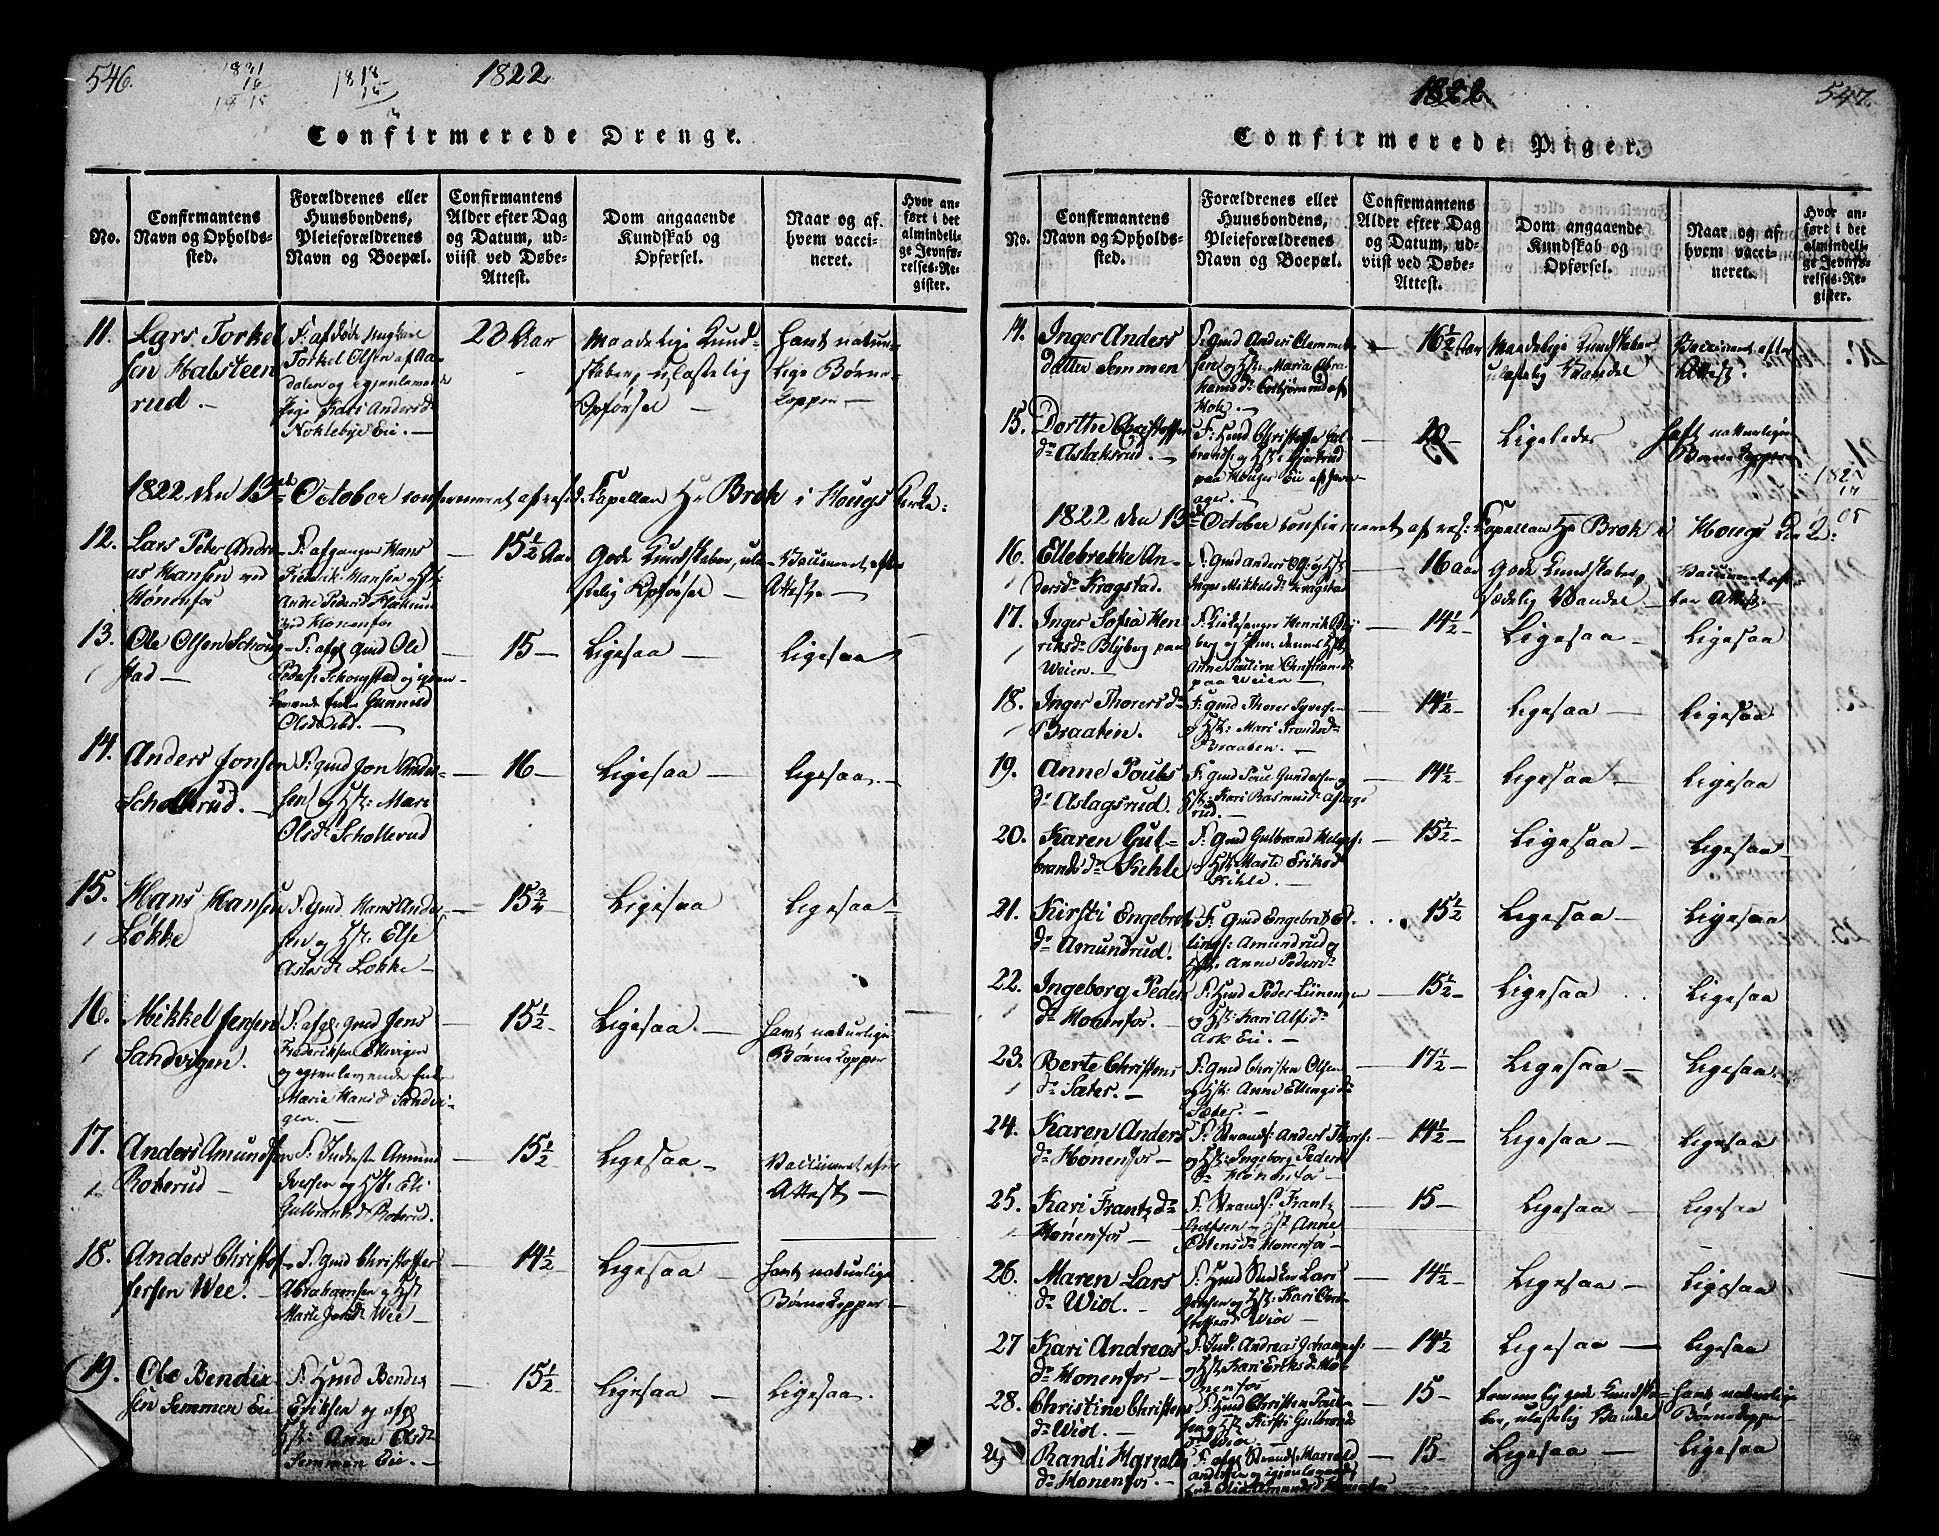 546.
1822
Confirmerede Drenge.
No.
Confirmantens
Navn og Opholds-
sted.
Forældrenes eller
Huusbondens,
Pleieforældrenes
Navn og Boepæl.
Confirmantens
Alder efter Dag
og Datum, ud-
viist ved Døbe-
Attest.
Dom angaaende
Kundskab og
Opførsel.
Naar og af
hvem vacci-
neret.
Hvor an-
ført i det
almindeli-
ge Jevnfø-
relses-Re-
gister.
11.
Lars Torkel
sen Halsteen
rud.
Torkel Olsen af Aa-
dalen og igjenlevende
Kari Andersd
Noklebye Eie.
23 Aar
Maadelige Kund-
skaber, ulastelig
Opførsel
havt natur-
lige Børne-
kopper
1822 den 13de October confirmeret af resid. Capellan Hr Brok i Hougs Kirke.
12.
Lars Peter Andre
as Hansen ved
Hønenfos
F. afgangen Hans
Frederik Hansen
ved Hønenfos
15½ Aar
Gode Kundskaber, ula-
stelig Opførsel
Vaccineret efter
Attest
13.
Ole Olsen Schoug
stad
F: afg. Gmd Ole
Peders. Schougstad og igjen-
levende Enke Gunnild
Olsd
15
Ligesaa
Ligesaa
14.
Anders Jonsen
Schollerud.
F: Gmd Jon Ander-
sen og Hst: Mari
Olsdr Schollerud
16
Ligesaa
Ligesaa
15.
Hans Hansen
Løkke
F. Gmd. Hans Ander
sen og Hst: Else
Løkke
15¾
Ligesaa
Ligesaa
16.
Mikkel Jensen
Sandvigen.
F: afg. Gmd Jens
Frederiksen
og igjenlevende Enke
Maria Hansd Sandvi-
gen.
15½
Ligesaa
havt naturlige
Børnekopper
17.
Anders Amundsen
Roterud
F. Inderste Amund
Iversen og Hst: Eli
Gulbrandsd Roterud.
15½
Ligesaa
Vaccineret efter
Attest
18.
Anders Christof
fersen Wee.
F. Gmd Christoffer
Abrahamsen og Hst
Marte Jensd Wee
14½
Ligesaa
havt naturlige
Børnekopper
19.
Ole Bendix
sen Semmen Eie
F. Hmd Bendix
Eriksen og afg.
Hst: Anne Olsdr
Semmen Eie.
15½
Ligesaa
Ligesaa.
1822
547.
Confirmerede Piger.
No.
Confirmantens
Navn og Opholds-
sted.
Forældrenes eller
Huusbondens,
Pleieforældrenes
Navn og Boepæl.
Confirmantens
Alder efter Dag
og Datum, ud-
viist ved Døbe-
Attest.
Dom angaaende
Kundskab og
Opførsel.
Naar og af
hvem vacci-
neret.
Hvor an-
ført i det
almindeli-
ge Jevnfø-
relses-Re-
gister.
14.
Inger Anders
datter Semmen
F. Gmd Anders Clemmet-
sen og Hst: Maria Abra
hamsdr
16½ Aar
Maadelige Kundskaber
ulastelig Vandel
Vaccineret efter
Attest.
15.
Dorthe Christoffers
dr Aslaksrud.
F: Hmd Christoffer Gul-
brands. og Hst:
Ligeledes
havt naturlige
Børnekopper
1822 den 13de October confirmeret af res: Capellan Hr Brok i Hougs Kirke:
16.
Ellebrekke An-
dersdr Kragstad.
F. Gmd Anders Ols. og Hst
Inger Mikkelsdr Kragstad
16 aar
Gode Kundskaber,
sædelig Vandel
Vaccineret ef-
ter Attest.
17.
Inger Sofia Hen
riksdr Blyberg paa
Weien.
F. Kirkesanger Henrik Bly
berg og
Anne Pauline Christiansdr
paa Weien
14½
Ligesaa
Ligesaa
18.
Inger Thoresdr
Braaten.
F: Gmd Thores Syvers.
og Hst: Mari Trondsdr
Braaten.
14½
Ligesaa
Ligesaa
19.
Anne Pouls
dr Aslagsrud.
F. Gmd Poul Gundersen og
Hst: Kari Rasmusdr Aslags
rud.
14½
Ligesaa
Ligesaa
20.
Karen Gul-
brandsdr Kihle
F. Gmd Gulbrand Helges:
og Hst: Marte Eriksd
Kihle.
15½
Ligesaa
Ligesaa
21.
Kirsti Engebret
dr Amundrud.
F. Gmd Engebret El-
lings: Amundrud og
Hst. Anne Pedersdr
15½
Ligesaa
Ligesaa
22.
Ingeborg Peders
dr Hønenfos.
F. Hmd Peder
og Hst: Kari Alfsdr
Ask Eie.
15½
Ligesaa
Ligesaa
23.
Berte Christens
dr Sæter.
F. Gmd Christen Olsen
og Hst: Anne Ellingsdr
Sæter.
17½
Ligesaa
Ligesaa.
24.
Karen Anders
dr Hønenfos
F. Strands: Anders Thors:
og Hst: Ingeborg Peders
dr Hønenfos
14½
Ligesaa
Ligesaa
25.
Kari Frantzdr
Hønenfos
F. Strands: Frantz
og Hst. Anne
Hønenfos
15
Ligesaa
Ligesaa
26.
Maren Lars
dr Wiol.
F. Hmd Lars
og Hst: Kari Chri-
stoffersd Wiol
14½
Ligesaa
Ligesaa
27
Kari Andreas
dr Hønenfos
F. Ind. Andreas Johannes:
og Hst. Kari Eriksdr Hø-
nenfos
14½
Ligesaa
Ligesaa
28.
Christine Christens
dr Wiol.
F. Hmd Christen Poul-
sen og Hst. Kirsti Gulbrands
dr Wiol
15
temmelig gode Kundska-
ber, ulastelig Vandel
havt naturlige
Børnekopper
29
Randi Harralds
dr Hønenfos.
F. afg. Strands: Harrald
Andersen og igjenlevende
Hønenfos
15
Ligesaa
Ligesaa